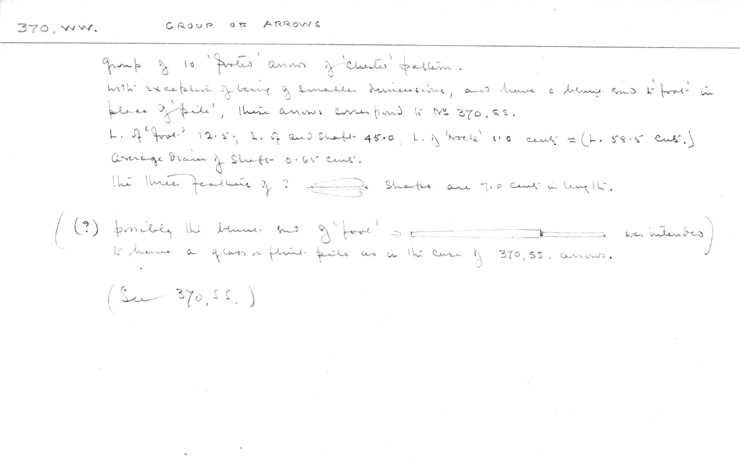 370, WW. GROUP OF ARROWS
Group of 10 'footed' arrows of 'Chested' pattern.
With exception of being of smaller dimensions, and have a blunt end to 'foot' in
place of 'pile', these arrows correspond to No 370, SS.
L. of 'foot' 12.5; L. of reed shaft 45.0, L. of 'nock' 1.0 cents = (L. 58.5 cents.)
Average diam of shaft 0.65 cent.
The three feathers of ? shape are 7.0 cents in length.
(?) possibly the blunt end of 'foot' was intended
to have a glass or flint pile as in the case of 370, SS. arrows.
(See 370, SS.)